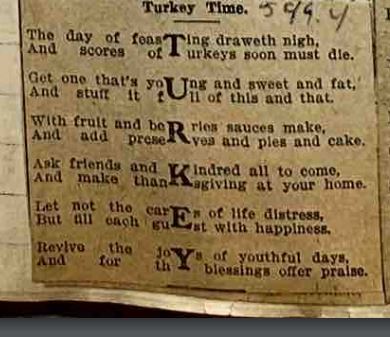 Turkey Time.
The day of feasTing draweth nigh,
And scores of Turkeys soon must die.
Get one that's yoUng and sweet and fat,
And stuff it fUll of this and that.
With fruit and beRries sauces make,
And add preseRves and pies and cake.
Ask friends and Kindred all to come,
And make thanKsgiving at your home.
Let not the carEs of life distress,
But fill each guEst with happiness.
Revive the joYs of youthful days,
And for thY blessings offer praise.